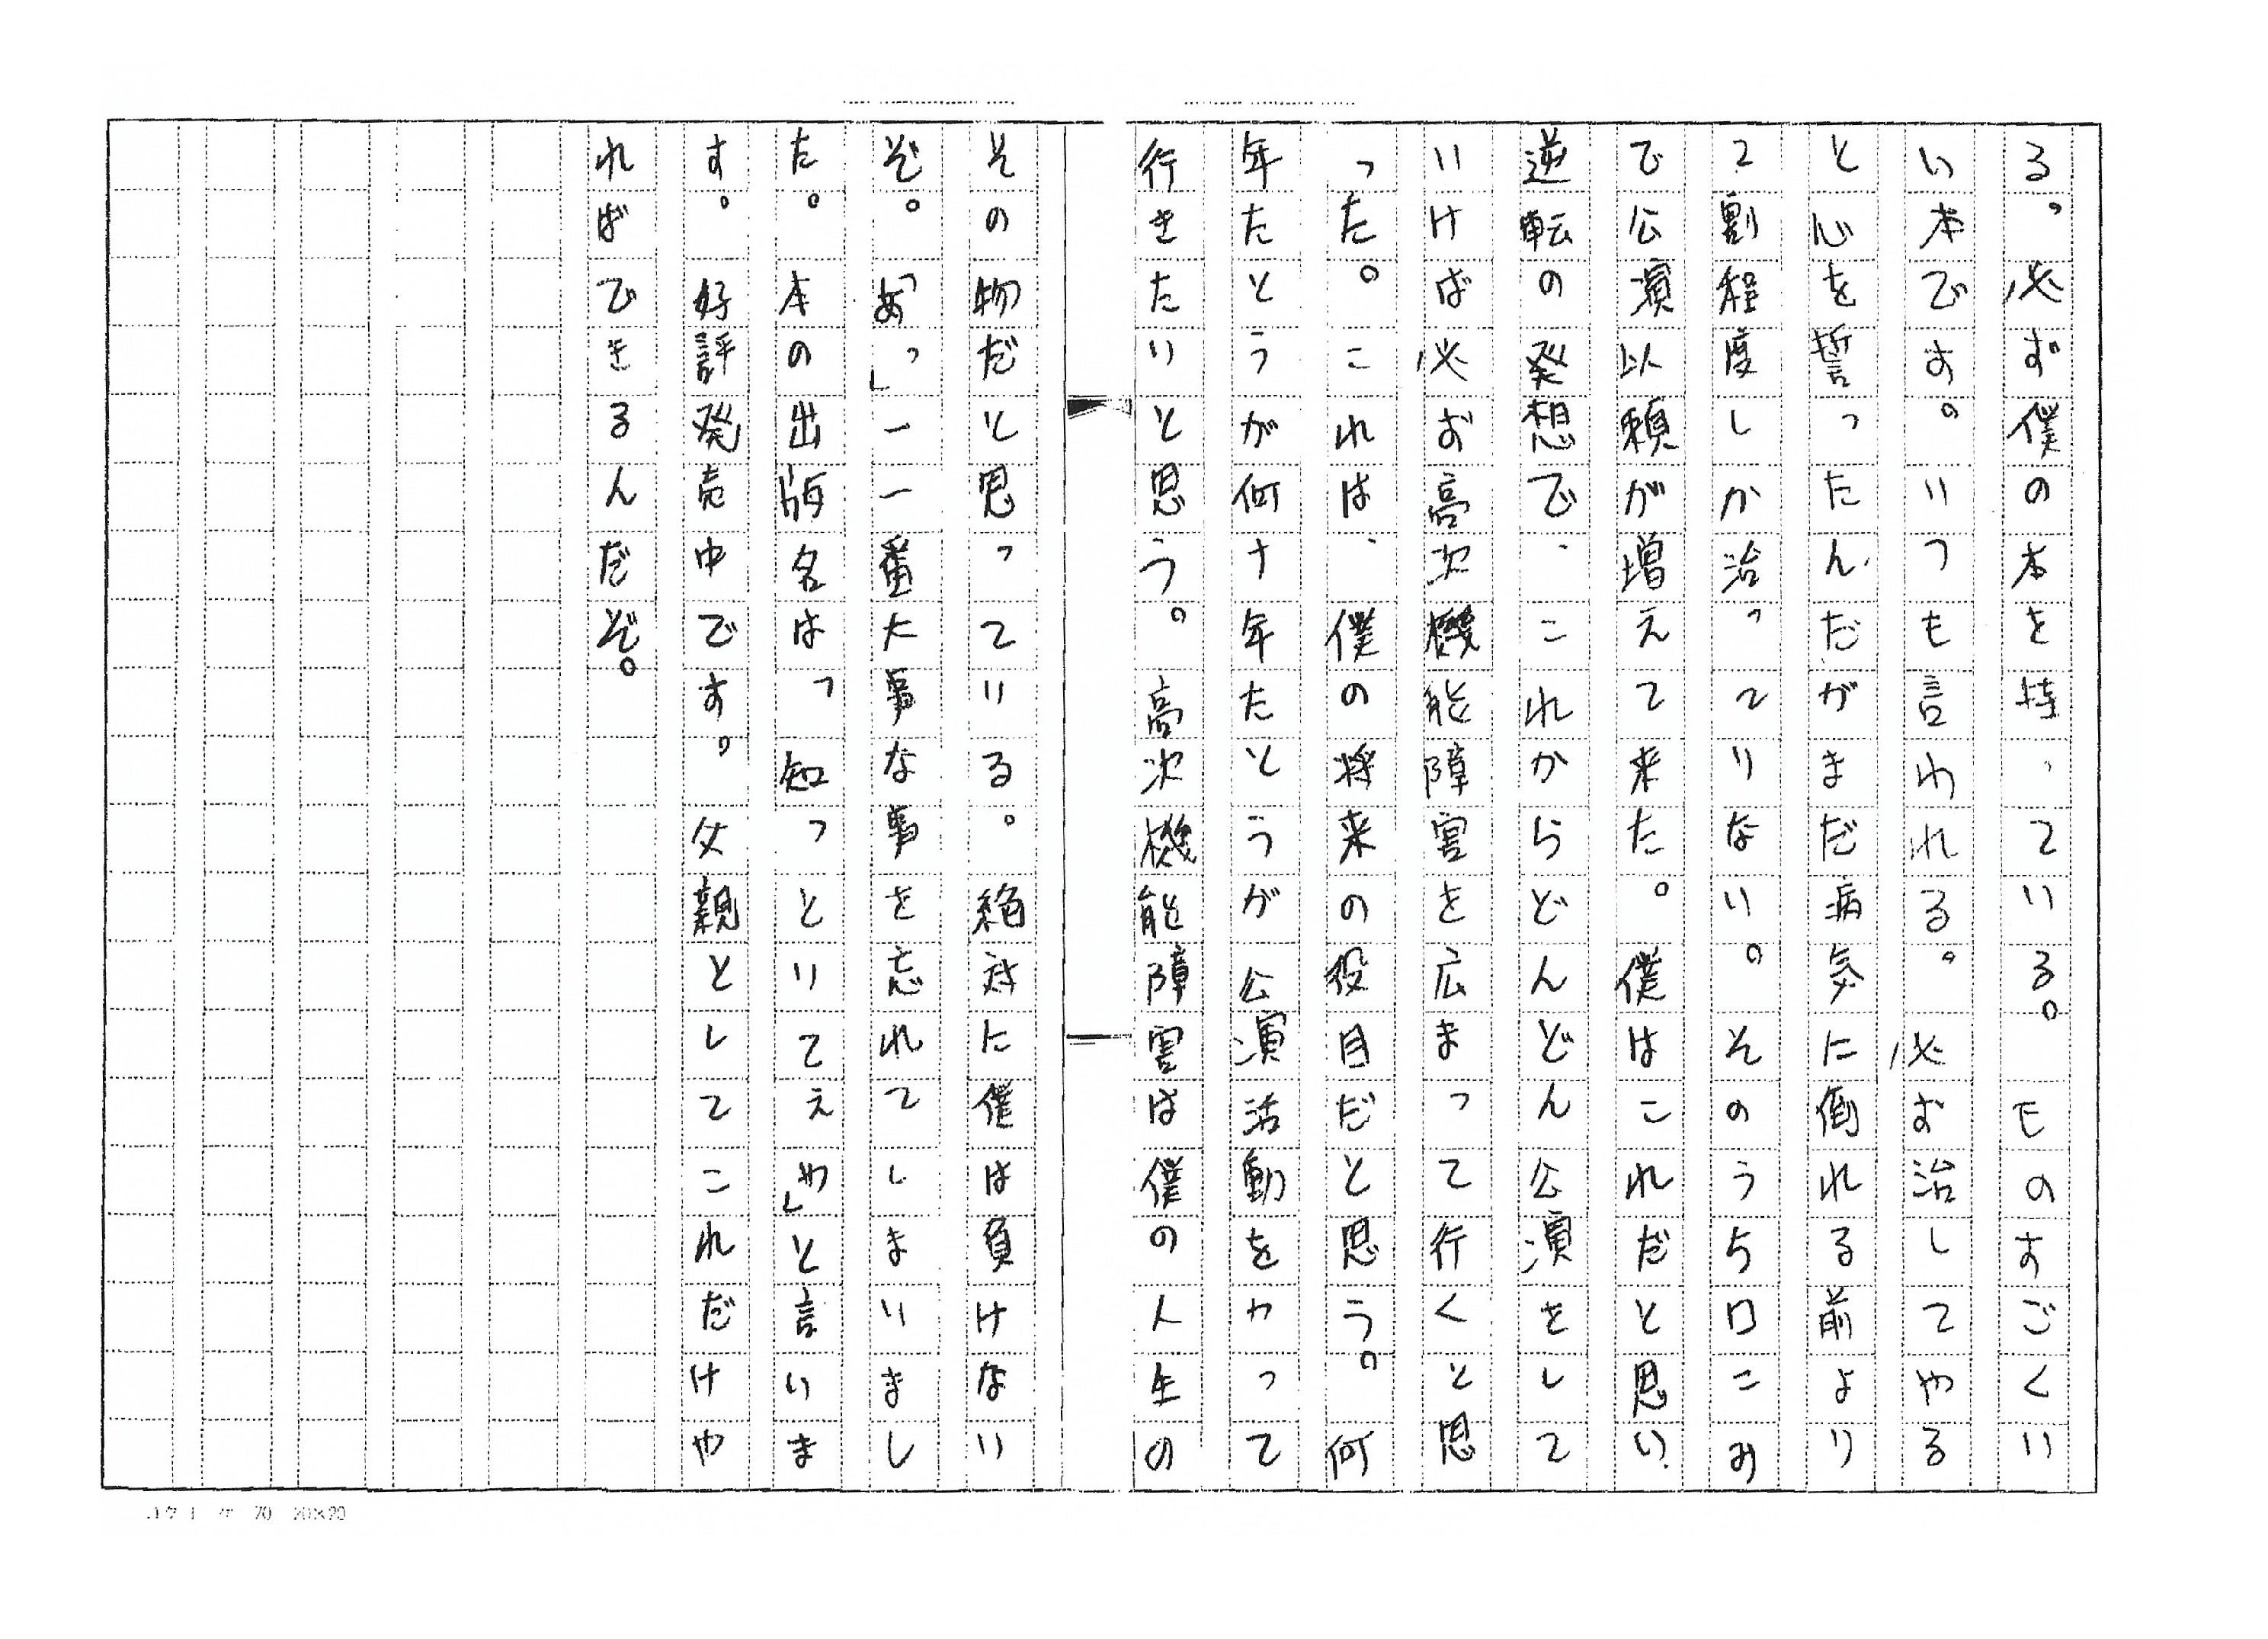 る。必ず僕の本を持っている。ものすごくい
い本です。いつも言われる。必ず治してやる
と心を誓ったんだがまだ病気に倒れる前より
2割程度しか治っていない。そのうち口こみ
で公演以頼が増えて来た。僕はこれだと思い
逆転の発想で、これからどんどん公演をして
いけば必ず高次機能障害を広まって行くと思
った。これは、僕の将来の役目だと思う。何
年たとうが何十年たとうが公演活動をやって
行きたいと思う。高次機能障害は僕の人生の
その物だと思っている。絶対に僕は負けない
ぞ。「あっ」一一番大事な事を忘れてしまいまし
た。本の出版名は「知っといてぇや」と言いま
す。好評発売中です。父親としてこれだけや
ればできるんだぞ。
20×20